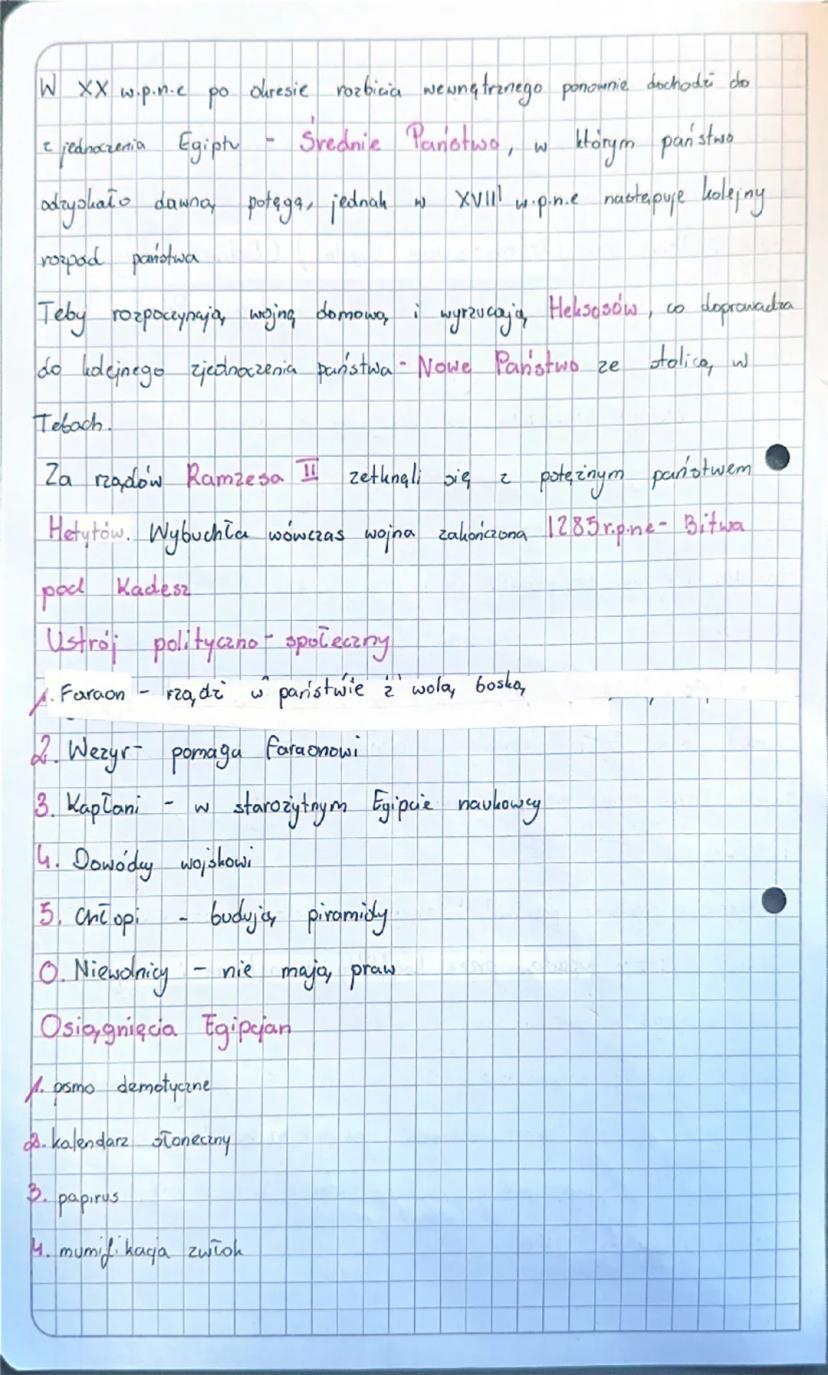 W XX w.p.n.e po okresie rozbicia wewnętrznego ponownie dochodzi do
zjednoczenia Egiptu - Średnie Państwo, w którym państwo
odzyskało dawną potęgę, jednak w XVIII w.p.n.e następuje kolejny
rozpad państwa
Teby rozpoczynają wojnę domową i wyrzucają Heksosów, co doprowadza
do kolejnego zjednoczenia państwa - Nowe Państwo ze stolicą w
Tebach.
Za rządów Ramzesa II zetknęli się z potężnym państwem
Hetytów. Wybuchła wówczas wojna zakończona 1285r.p.ne - Bitwa
pod Kadesz
Ustrój polityczno - społeczny
1. Faraon - rządzi w państwie z wolą boską
2. Wezyr - pomaga faraonowi
3. Kapłani - w starożytnym Egipcie naukowcy
4. Dowódcy wojskowi
5. Chłopi - budują piramidy
0. Niewolnicy - nie mają praw
Osiągnięcia Egipcjan
1. psmo demotyczne
2. kalendarz słoneczny
3. papirus
4. mumifikacja zwłok